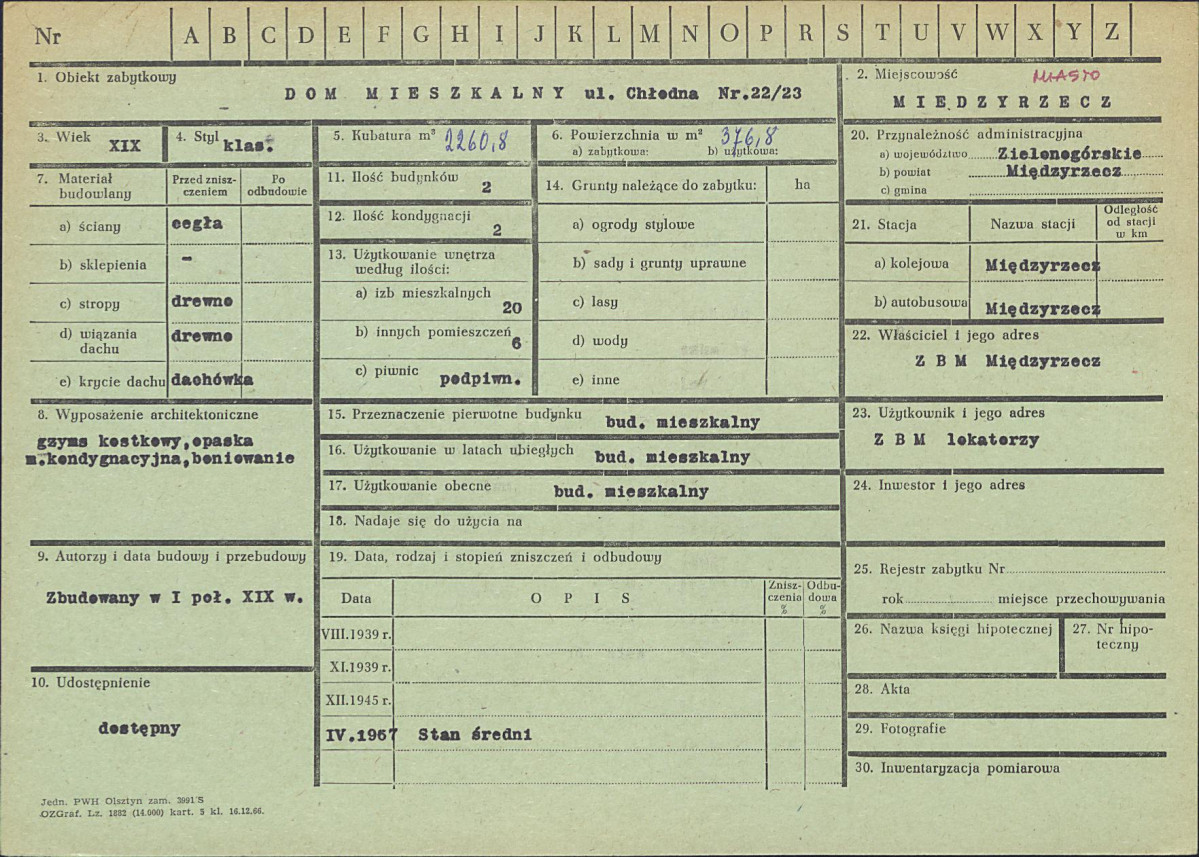 Nr A B C D E F G H I J K L M N O P R S T U V W X Y Z
1. Obiekt zabytkowy
DOM MIESZKALNY ul. Chłodna Nr.22/23
2. Miejscowość MIASTO
MIĘDZYRZECZ
3. Wiek XIX
4. Styl klas.
5. Kubatura m³ 2260,8
6. Powierzchnia w m² 376,8
a) zabytkowa: b) użytkowa:
7. Materiał budowlany
Przed zniszczeniem
Po odbudowie
a) ściany cegła
b) sklepienia -
c) stropy drewno
d) wiązania dachu drewno
e) krycie dachu dachówka
8. Wyposażenie architektoniczne
gzyms kostkowy,opaska
m.kondygnacyjna,boniowanie
9. Autorzy i data budowy i przebudowy
Zbudowany w I poł. XIX w.
10. Udostępnienie
dostępny
11. Ilość budynków 2
12. Ilość kondygnacji 2
13. Użytkowanie wnętrza
według ilości:
a) izb mieszkalnych 20
b) innych pomieszczeń 6
c) piwnic podpiwn.
14. Grunty należące do zabytku: ha
a) ogrody stylowe
b) sady i grunty uprawne
c) lasy
d) wody
e) inne
15. Przeznaczenie pierwotne budynku bud. mieszkalny
16. Użytkowanie w latach ubiegłych bud. mieszkalny
17. Użytkowanie obecne bud. mieszkalny
18. Nadaje się do użycia na
19. Data, rodzaj i stopień zniszczeń i odbudowy
Data OPIS Zniszczenia % Odbudowa %
VIII.1939 r.
XI.1939 r.
XII.1945 r.
IV.1967 Stan średni
20. Przynależność administracyjna
a) województwo Zielonogórskie
b) powiat Międzyrzecz
c) gmina
21. Stacja Nazwa stacji Odległość od stacji w km
a) kolejowa Międzyrzecz
b) autobusowa Międzyrzecz
22. Właściciel i jego adres
Z B M Międzyrzecz
23. Użytkownik i jego adres
Z B M lokatorzy
24. Inwestor i jego adres
25. Rejestr zabytku Nr
rok miejsce przechowywania
26. Nazwa księgi hipotecznej
27. Nr hipoteczny
28. Akta
29. Fotografie
30. Inwentaryzacja pomiarowa
Jedn. PWH Olsztyn zam. 3991 S
OZGraf. Lz. 1882 (14.000) kart. 5 kl. 16.12.66.